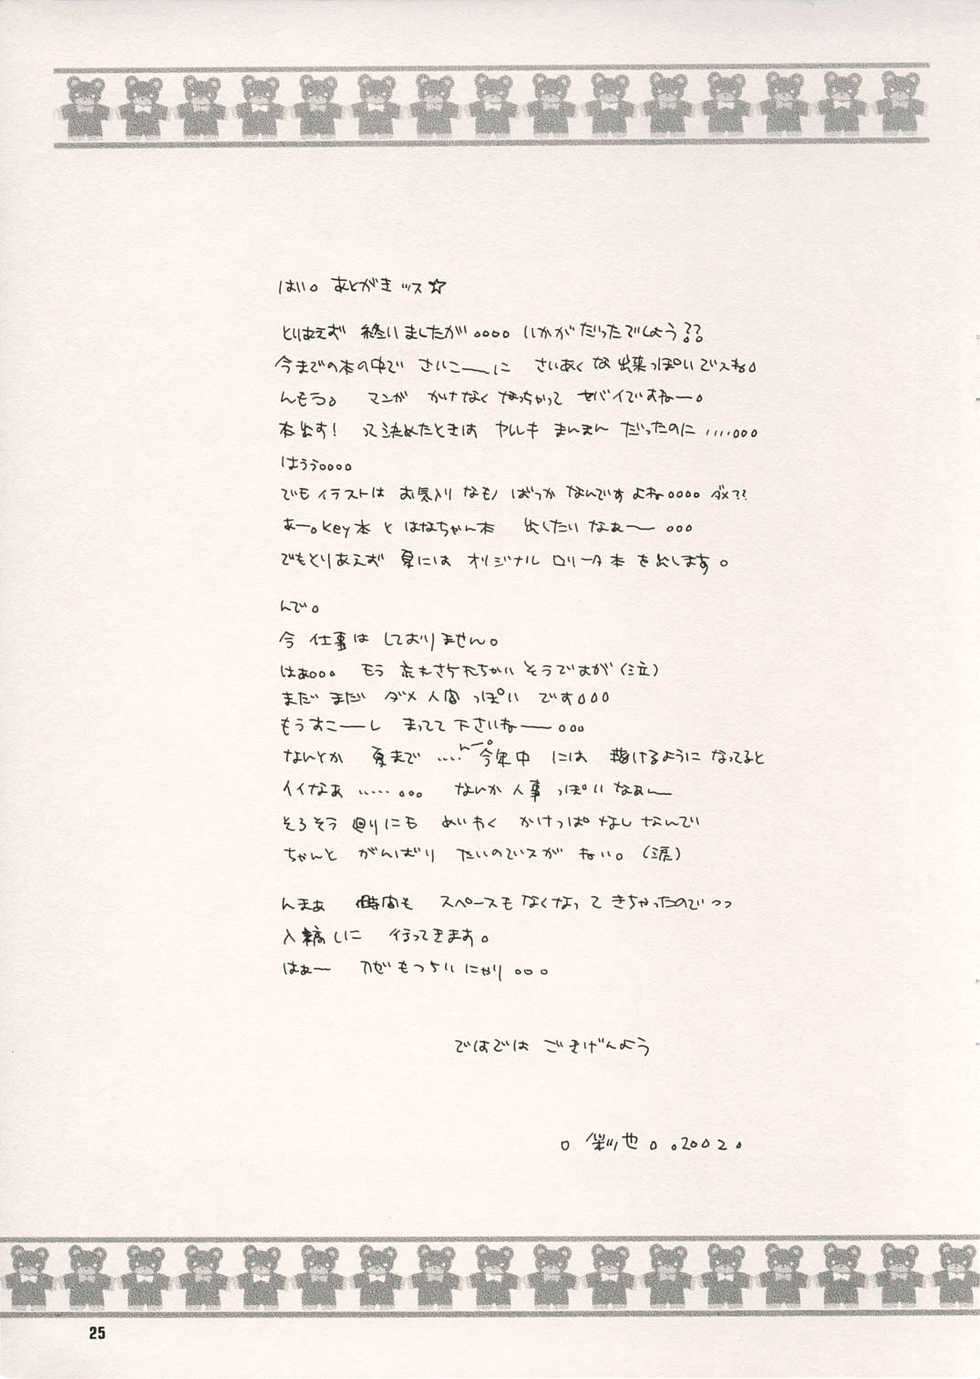 はい。あとがきッス☆
とりあえず 終いましたが。。。。いかがだったでしょう??
今までの本の中で さいこーーに さいあくな出来っぽいでスね。
んもう。 マンガ かけなくなっちゃって ヤバイですねー。
本出す! って決めたときは ヤルキ まんまん だったのに ……。。。
はうう。。。。
でもイラストは お気入りなモノ ばっか なんですよね。。。。 ダメ??
あー。key本 と はなちゃん本 出したいなぁー 。。。
でもとりあえず 夏には オリジナル ロリータ本 を出します。
んで。
今 仕事は しておりません。
はぁ。。。 もう 忘れさられちゃいそうですが(泣)
まだ まだ ダメ人間っぽい です。。。
もうすこーーし まってて下さいねー。。。
なんとか 夏まで …‥んー。今年中 には 描けるように なってると
イイなぁ ……。。。 ないか人事っぽいなぁー
そろそろ 回りにも めいわく かけっぱなしなんで
ちゃんと がんばり たいのでスが ねい。(涙)
んまぁ 時間も スペースもなくなって きちゃったのでっっ
入稿しに 行ってきます。
はぁー カゼもつらいにゃり。。。
ではでは ごきげんよう
也 。.2002.
25